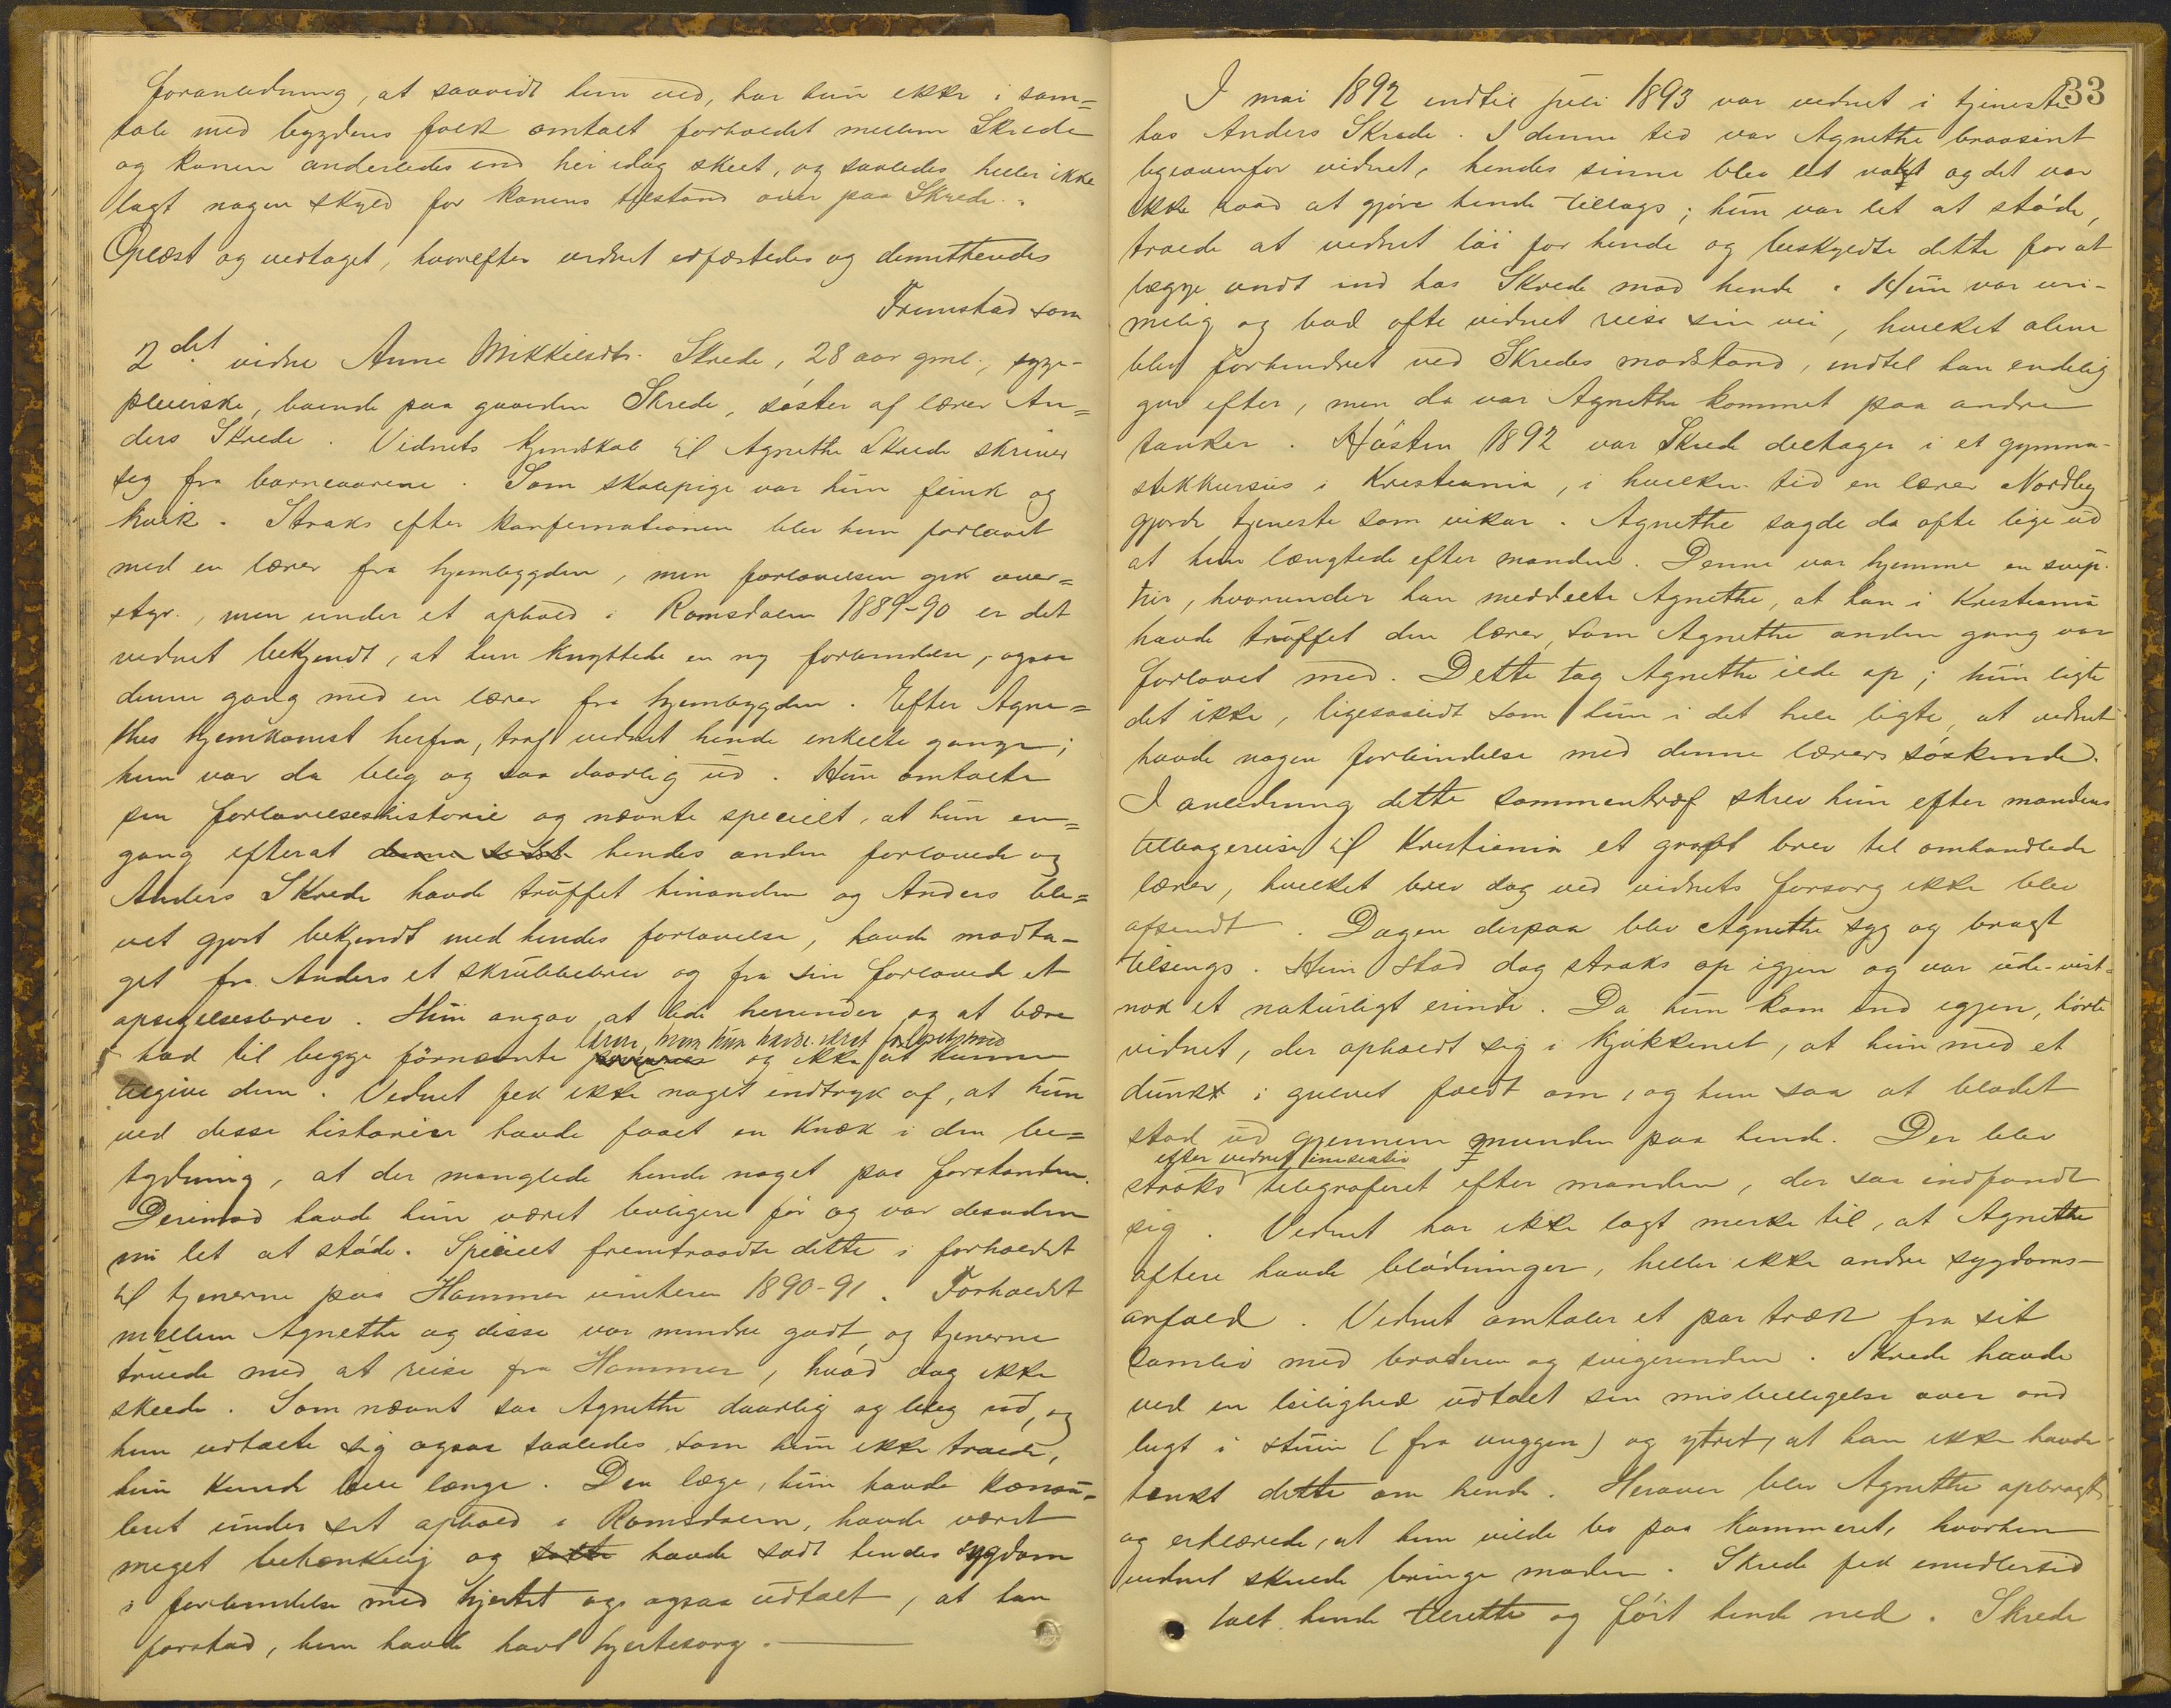 foranledning, at saavidt hun ved, har hun ikke i sam=
tale med bygdens folk omtalt forholdet mellem Skrede
og konen anderledes end her idag skeet, og saaledes heller ikke
lagt nogen skyld for konens tilstand over paa Skrede.
Oplæst og vedtaget, hvorefter vidnet edfæstedes og demitteredes
Fremstod som
2det vidne Anne Mikkelsdtr. Skrede, 28 aar gml., syge-
pleierske, boende paa gaarden Skrede, søster af lærer An=
ders Skrede. Vidnets kjendskab til Agnethe Skrede skriver
sig fra barneaarene. Som skolepige var hun flink og
kvik. Straks efter konfirmationen blev hun forlovet
med en lærer fra hjembygden, men forlovelsen gik over=
styr, men under et ophold i Romsdalen 1889-90 er det
vidnet bekjendt, at hun knyttede en ny forbindelse, ogsaa
denne gang med en lærer fra hjembygden. Efter Agne=
thes hjemkomst herfra, traf vidnet hende enkelte gange;
hun var da bleg og saa daarlig ud. Hun omtalte
sin forlovelseshistorie og nævnte specielt, at hun en=
gang efterat denne sidst hendes anden forlovede og
Anders Skrede havde trüffet hinanden og Anders ble=
vet gjort bekjendt med hendes forlovelse, havde modta-
get fra Anders et skrubbebrev og fra sin forlovede et
opsigelsesbrev. Hun angav at lide herunder og at bære
lærere, hvem hun havde været forlovet med
had til begge førnævnte og ikke at kunne
tilgive dem. Vidnet fik ikke noget indtryk af, at hun
ved disse historier havde faaet en knæk i den be=
tydning, at der manglede hende noget paa forstanden.
Derimod havde hun været livligere før og var desuden
nu let at støde. Specielt fremtraadte dette i forholdet
til tjenerne paa Hammer vinteren 1890-91. Forholdet
mellem Agnethe og disse var mindre godt, og tjenerne
truede med at reise fra Hammer, hvad dog ikke
skeede. Som nævnt saa Agnethe daarlig og bleg ud, og
hun udtalte sig ogsaa saaledes som hun ikke troede,
hun kunde leve længe. Den læge, hun havde konsul-
teret under sit ophold i Romsdalen, havde været
meget betænkelig og satte havde sadt hendes sygdom
i forbindelse med hjertet og ogsaa udtalt, at han
forstod, hun havde havt hjertesorg.
33
I mai 1892 indtil juli 1893 var vidnet i tjeneste
hos Anders Skrede. I denne tid var Agnethe braasint
ligeoverfor vidnet, hendes sinne blev let vakt og det var
ikke raad at gjøre hende tillags; hun var let at støde,
troede at vidnet løi for hende og beskyldte dette for at
lægge ondt ind hos Skrede mod hende. Hun var uri-
melig og bad ofte vidnet reise sin vei, hvilket alene
blev forhindret ved Skredes modstand, indtil han endelig
gav efter, men da var Agnethe kommet paa andre
tanker. Høsten 1892 var Skrede deltager i et gymna-
stikkursus i Kristiania, i hvilken tid en lærer Nordby
gjorde tjeneste som vikar. Agnethe sagde da ofte lige ud
at hun længtede efter manden. Denne var hjemme en svip-
tur, hvorunder han meddelte Agnethe, at han i Kristiania
havde trüffet den lærer, som Agnethe anden gang var
forlovet med. Dette tog Agnethe ilde op; hun ligte
det ikke, ligesaalidt som hun i det hele ligte, at vidnet
havde nogen forbindelse med denne lærers søskende.
I anledning dette sammentræf skrev hun efter mandens
tilbagereise til Kristiania et grovt brev til omhandlede
lærer, hvilket brev dog ved vidnets forsorg ikke blev
afsendt. Dagen derpaa blev Agnethe syg og bragt
tilsengs. Hun stod dog straks op igjen og var ude - vist-
nok et naturligt erinde. Da hun kom ind igjen, hørte
vidnet, der opholdt sig i kjøkkenet, at hun med et
dunk i gulvet faldt om, og hun saa at blodet
stod ud gjennem munden paa hende. Der blev
efter vidnets initiativ
straks telegraferet efter manden, der saa indfandt
sig. Vidnet har ikke lagt merke til, at Agnethe
oftere havde blødninger, heller ikke andre sygdoms-
anfald. Vidnet omtaler et par træk fra sit
samliv med broderen og svigerinden. Skrede havde
ved en leilighed udtalt sin misbilligelse over ond
lugt i stuen (fra vuggen) og ytret, at han ikke havde
tænkt dette om hende. Herover blev Agnethe opbragt
og erklærede, at hun vilde bo paa kammeret, hvorhen
vidnet skulde bringe maden. Skrede fik imidlertid
talt hende tilrette og ført hende ned. Skrede